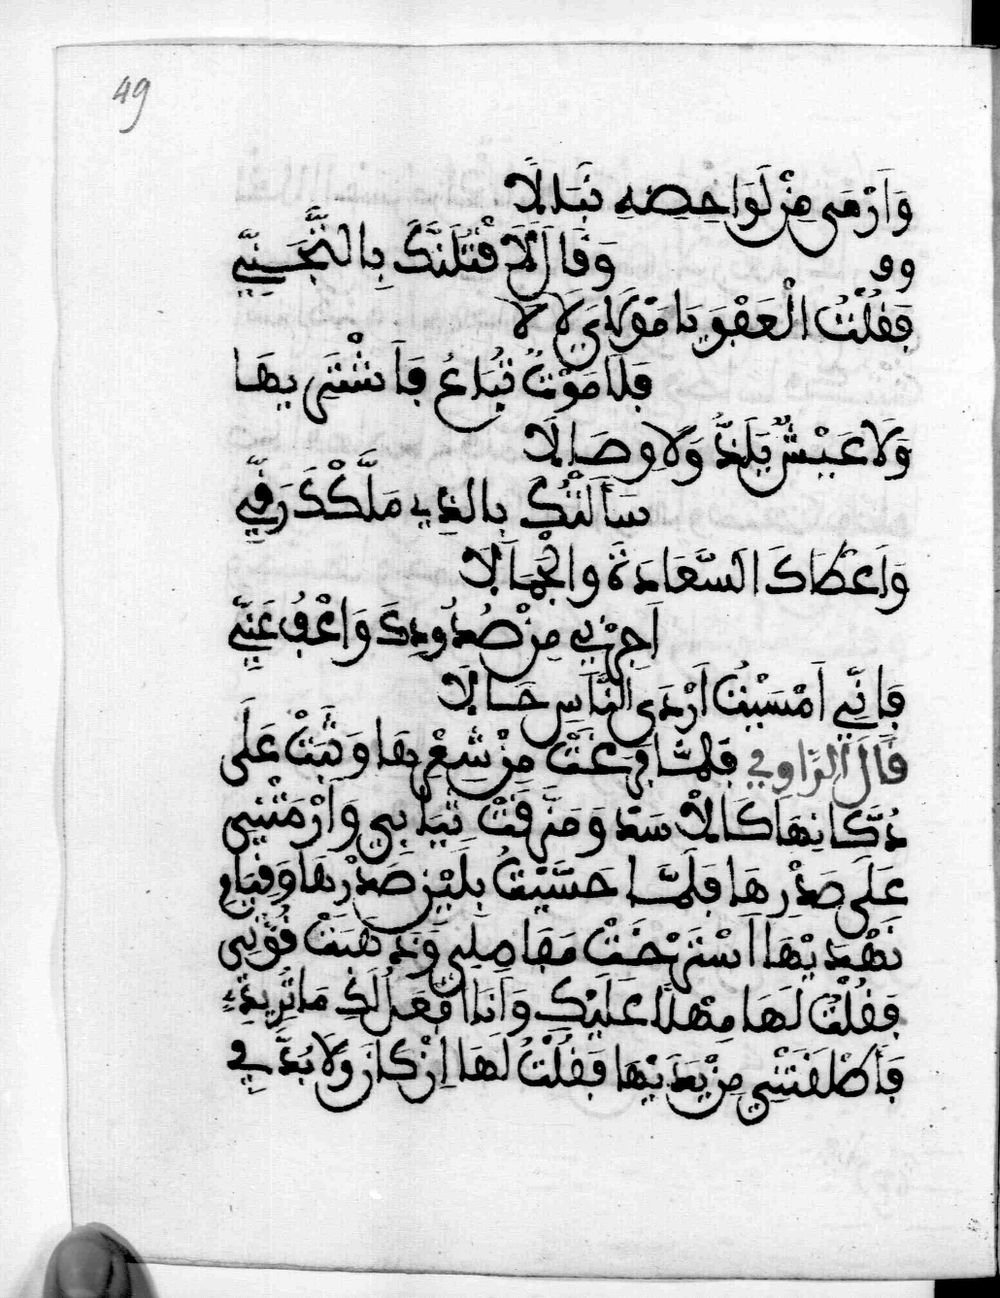 49
وَاَرْمَى مِنْ لَوَاحِضِهِ نَبَالاَ
وو وَقَالَ لَاَقْتُلَنَّكَ بِالتَّجَنِّي
فَقُلْتُ الْعَفْوَ يَا مَوْلَايَ لَا لَا
فَلَا مَوْتٌ تُبَاعُ فَاَشْتَرِي بِهَا
وَلَا عَيْشٌ يَلَذُّ وَلَا وِصَالَا
سَأَلْتُكَ بِالذِي مَلَّكْكَ رَقِّي
وَاَعْطَاكَ السَّعَادَةَ وَالْجَمَالَا
اَجِرْنِي مِنْ صُدُودِكَ وَاعْفُ عَنِّي
فَاِنِّي اَمْسَيْتُ اَرْدَى النَّاسِ حَالَا
قَالَ الرَّاوِي فَلَمَّا فَرَغَتْ مِنْ شِعْرِهَا وَثَبَتْ عَلَى
دُكَّانِهَا كَالْاَسَدْ وَمَزَّقَتْ ثِيَابِي وَاَرْمَتْنِي
عَلَى صَدْرِهَا فَلَمَّا حَسَّيْتُ بِلَيْنِ صَدْرِهَا وَقِيَامِ
نَهْدَيْهَا اَسْتَرْخَتْ مَفَاصِلِي وَذَهَبَتْ قُوَّتِي
فَقُلْتُ لَهَا مِهْلاً عَلَيْكِ وَاَنَا اَفْعَلُ لَكِ مَا تُرِيدِي
فَأَطْلَقَتْنِي مِنْ يَدَيْهَا فَقُلْتُ لَهَا اِنْ كَانَ وَلَا بُدَّ لِي